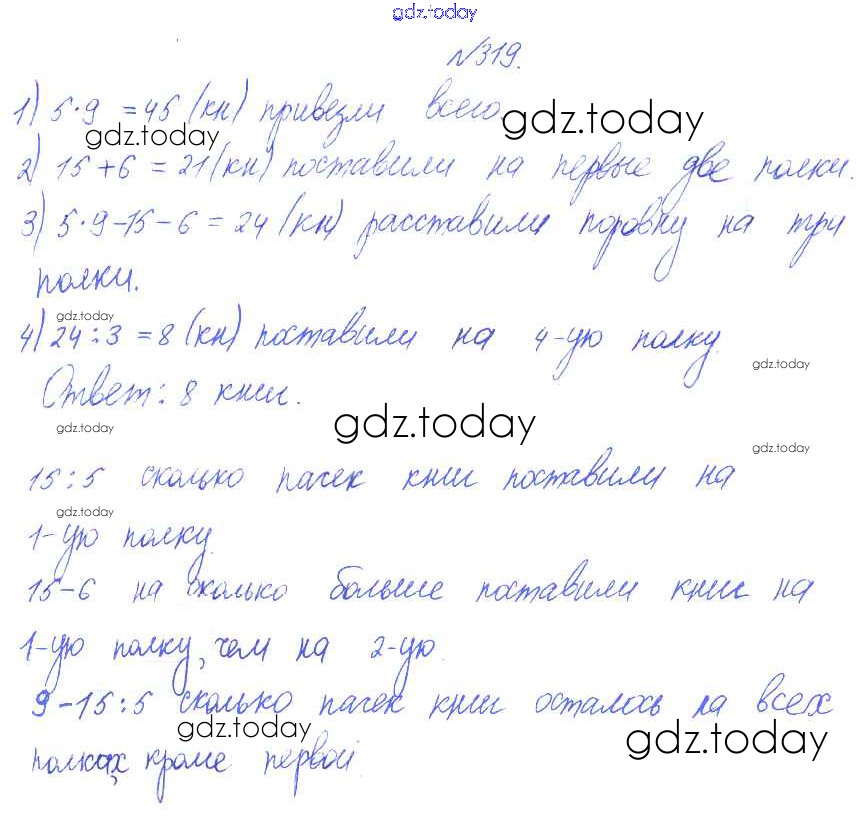 gdz.today
№319.
1) 5·9 = 45 (кн) привезли всего.
gdz.today gdz.today
2) 15+6 = 21 (кн) поставили на первые две полки.
3) 5·9-15-6 = 24 (кн) расставили поровну на три
полки.
gdz.today
4) 24:3 = 8 (кн) поставили на 4-ую полку.
gdz.today
Ответ: 8 книг.
gdz.today gdz.today
gdz.today
15:5 сколько пачек книг поставили на
gdz.today
1-ую полку.
15-6 на сколько больше поставили книг на
1-ую полку, чем на 2-ую.
9-15:5 сколько пачек книг осталось на всех
gdz.today gdz.today
полках, кроме первой